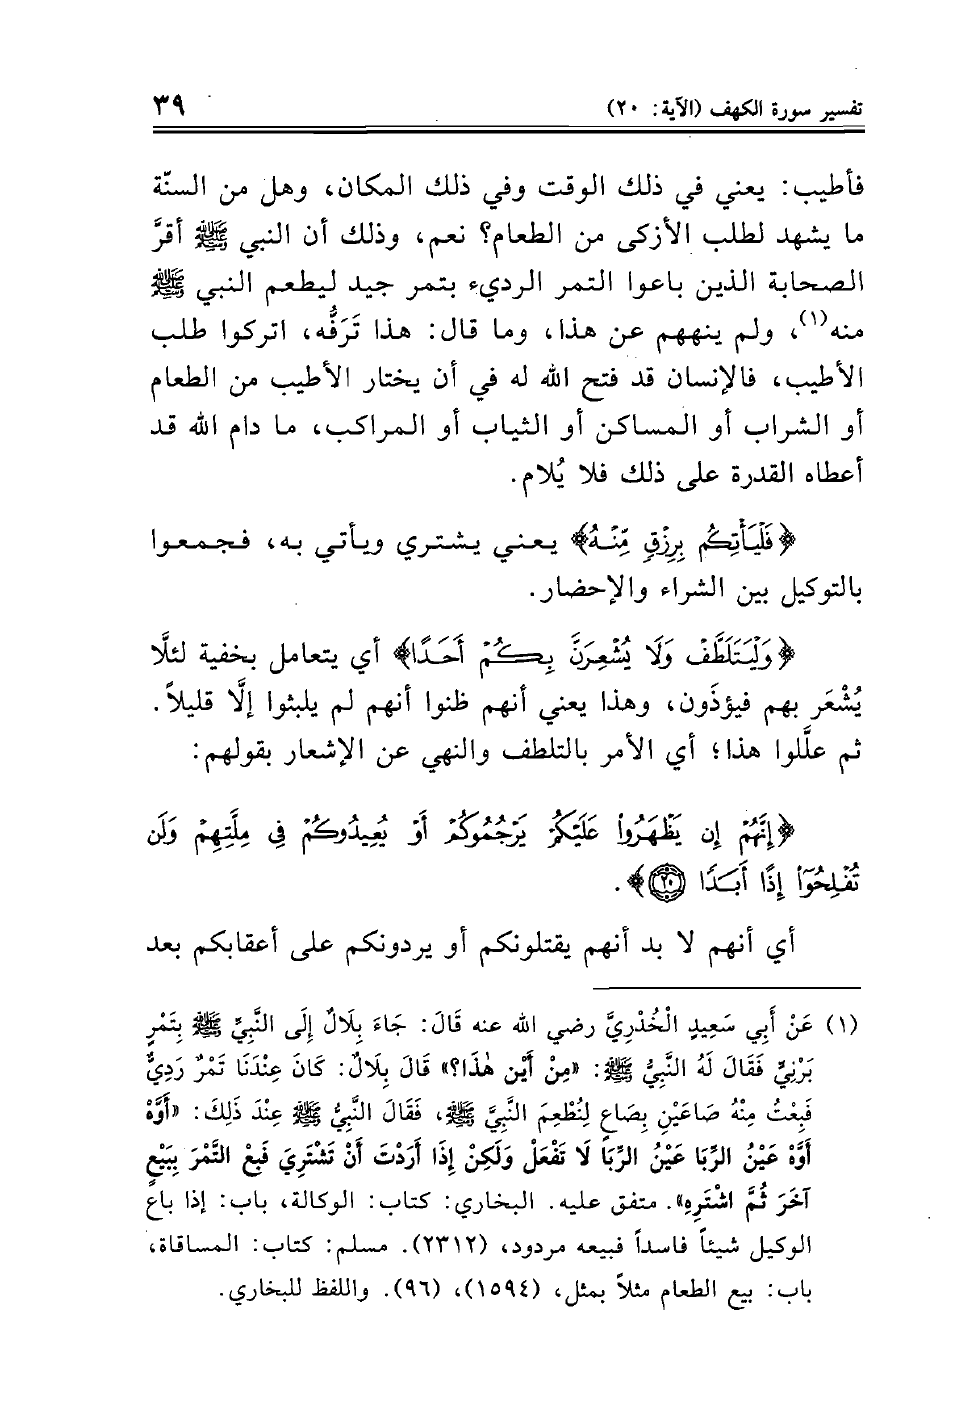 تفسير سورة الكهف (الآية: ٢٠) ٣٩
فأطيب: يعني في ذلك الوقت وفي ذلك المكان، وهل من السنّة
ما يشهد لطلب الأزكى من الطعام؟ نعم، وذلك أن النبي ﷺ أقرَّ
الصحابة الذين باعوا التمر الرديء بتمر جيد ليطعم النبي ﷺ
منه(١)، ولم ينههم عن هذا، وما قال: هذا تَرَفُّه، اتركوا طلب
الأطيب، فالإنسان قد فتح الله له في أن يختار الأطيب من الطعام
أو الشراب أو المساكن أو الثياب أو المراكب، ما دام الله قد
أعطاه القدرة على ذلك فلا يُلام.
﴿فَلْيَأْتِكُم بِرِزْقٍ مِّنْهُ﴾ يعني يشتري ويأتي به، فجمعوا
بالتوكيل بين الشراء والإحضار.
﴿وَلْيَتَلَطَّفْ وَلَا يُشْعِرَنَّ بِكُمْ أَحَدًا﴾ أي يتعامل بخفية لئلَّا
يُشْعَر بهم فيؤذَون، وهذا يعني أنهم ظنوا أنهم لم يلبثوا إلَّا قليلاً.
ثم علَّلوا هذا؛ أي الأمر بالتلطف والنهي عن الإشعار بقولهم:
﴿إِنَّهُمْ إِن يَظْهَرُوا۟ عَلَيْكُمْ يَرْجُمُوكُمْ أَوْ يُعِيدُوكُمْ فِى مِلَّتِهِمْ وَلَن
تُفْلِحُوٓا۟ إِذًا أَبَدًا ۝٢٠﴾.
أي أنهم لا بد أنهم يقتلونكم أو يردونكم على أعقابكم بعد
(١) عَنْ أَبِي سَعِيدٍ الْخُدْرِيِّ رضي الله عنه قَالَ: جَاءَ بِلَالٌ إِلَى النَّبِيِّ ﷺ بِتَمْرٍ
بَرْنِيٍّ فَقَالَ لَهُ النَّبِيُّ ﷺ: «مِنْ أَيْن هٰذَا؟» قَالَ بِلَالٌ: كَانَ عِنْدَنَا تَمْرٌ رَدِيٌّ
فَبِعْتُ مِنْهُ صَاعَيْنِ بِصَاعٍ لِنُطْعِمَ النَّبِيَّ ﷺ، فَقَالَ النَّبِيُّ ﷺ عِنْدَ ذَلِكَ: «أَوَّهْ
أَوَّهْ عَيْنُ الرِّبَا عَيْنُ الرِّبَا لَا تَفْعَلْ وَلَكِنْ إِذَا أَرَدْتَ أَنْ تَشْتَرِيَ فَبِعْ التَّمْرَ بِبَيْعٍ
آخَرَ ثُمَّ اشْتَرِهِ». متفق عليه. البخاري: كتاب: الوكالة، باب: إذا باع
الوكيل شيئاً فاسداً فبيعه مردود، (٢٣١٢). مسلم: كتاب: المساقاة،
باب: بيع الطعام مثلاً بمثل، (١٥٩٤)، (٩٦). واللفظ للبخاري.